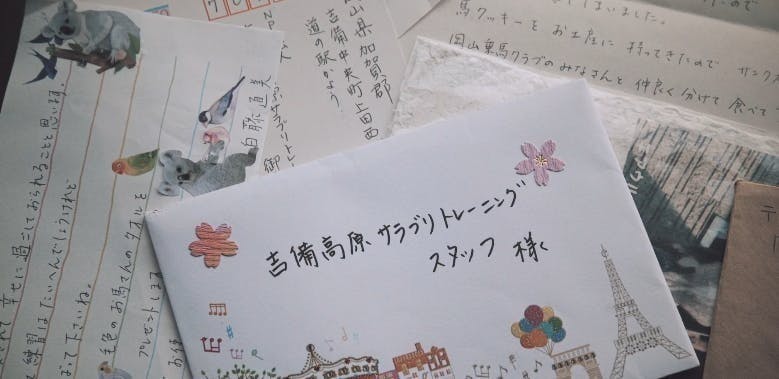 吉備高原サラブリトレーニング
スタッフ 様
山県加賀郡
吉備中央町上田西
道の駅かよう
サラブリトレ
御
直美
しまいました。
馬クッキーをお土産に持ってきたので
岡山乗馬クラブのみなさんと仲良く分けて食べて
れて幸せに過ごしておられることと思います。
練習はたいへんでしょうけれど
て下さいね。
毛色のお馬さんのタオルを
プレゼントしま